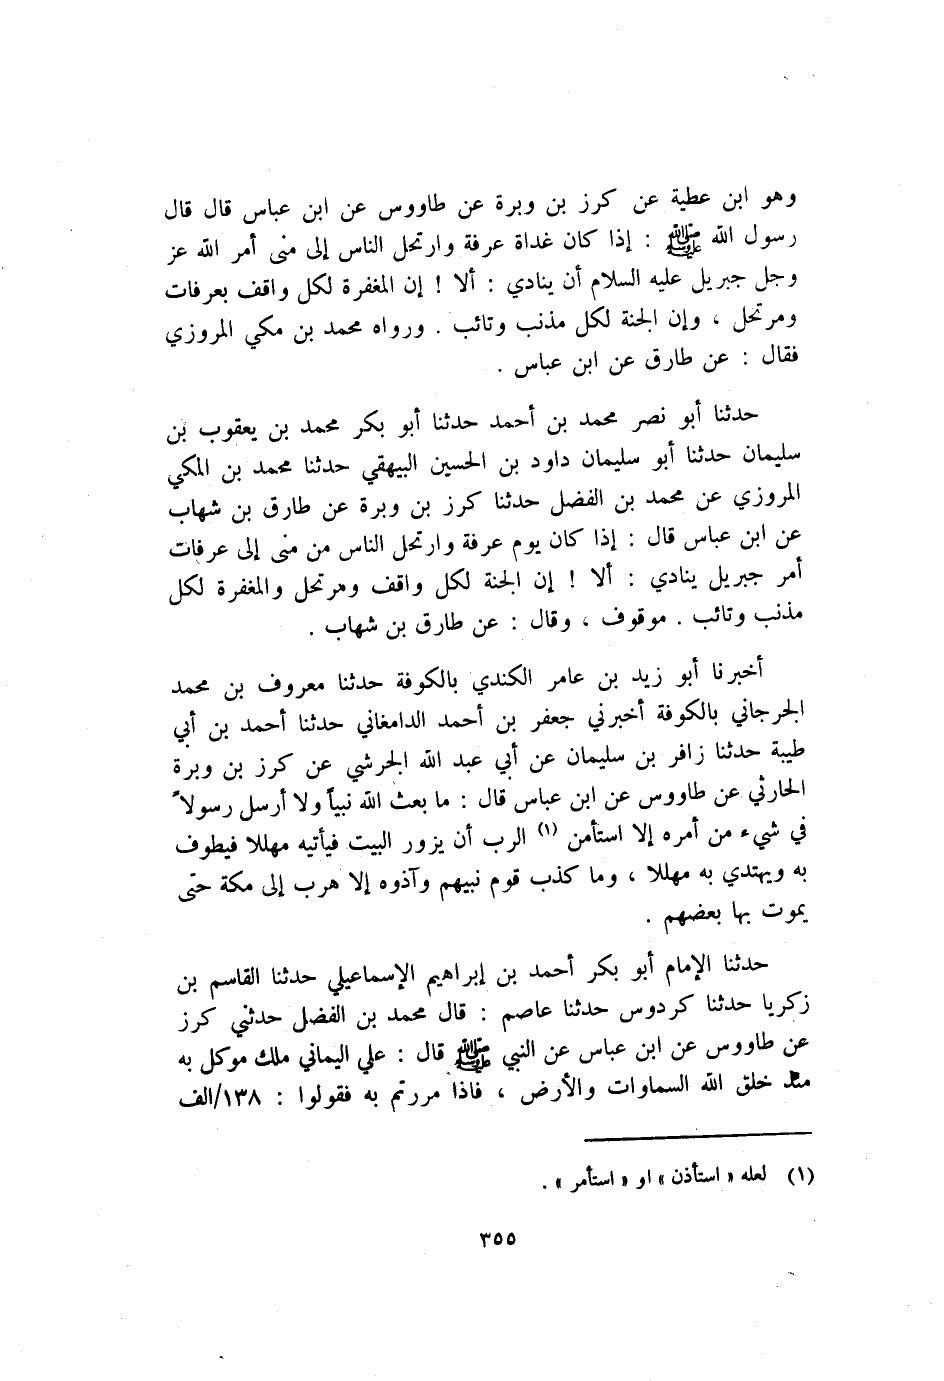 وهو ابن عطية عن كرز بن وبرة عن طاووس عن ابن عباس قال قال
رسول الله ﷺ : إذا كان غداة عرفة وارتحل الناس إلى منى أمر الله عز
وجل جبريل عليه السلام أن ينادي : ألا ! إن المغفرة لكل واقف بعرفات
ومرتحل ، وإن الجنة لكل مذنب وتائب . ورواه محمد بن مكي المروزي
فقال : عن طارق عن ابن عباس .
حدثنا أبو نصر محمد بن أحمد حدثنا أبو بكر محمد بن يعقوب بن
سليمان حدثنا أبو سليمان داود بن الحسين البيهقي حدثنا محمد بن المكي
المروزي عن محمد بن الفضل حدثنا كرز بن وبرة عن طارق بن شهاب
عن ابن عباس قال : إذا كان يوم عرفة وارتحل الناس من منى إلى عرفات
أمر جبريل ينادي : ألا ! إن الجنة لكل واقف ومرتحل والمغفرة لكل
مذنب وتائب . موقوف ، وقال : عن طارق بن شهاب .
أخبرنا أبو زيد بن عامر الكندي بالكوفة حدثنا معروف بن محمد
الجرجاني بالكوفة أخبرني جعفر بن أحمد الدامغاني حدثنا أحمد بن أبي
طيبة حدثنا زافر بن سليمان عن أبي عبد الله الجرشي عن كرز بن وبرة
الحارثي عن طاووس عن ابن عباس قال : ما بعث الله نبياً ولا أرسل رسولاً
في شيء من أمره إلا استأمن (١) الرب أن يزور البيت فيأتيه مهللا فيطوف
به ويهتدي به مهللا ، وما كذب قوم نبيهم وآذوه إلا هرب إلى مكة حتى
يموت بها بعضهم .
حدثنا الإمام أبو بكر أحمد بن إبراهيم الإسماعيلي حدثنا القاسم بن
زكريا حدثنا كردوس حدثنا عاصم : قال محمد بن الفضل حدثني كرز
عن طاووس عن ابن عباس عن النبي ﷺ قال : علي اليماني ملك موكل به
منذ خلق الله السماوات والأرض ، فاذا مررتم به فقولوا : ١٣٨/الف
(١) لعله « استأذن » او « استأمر » .
٣٥٥